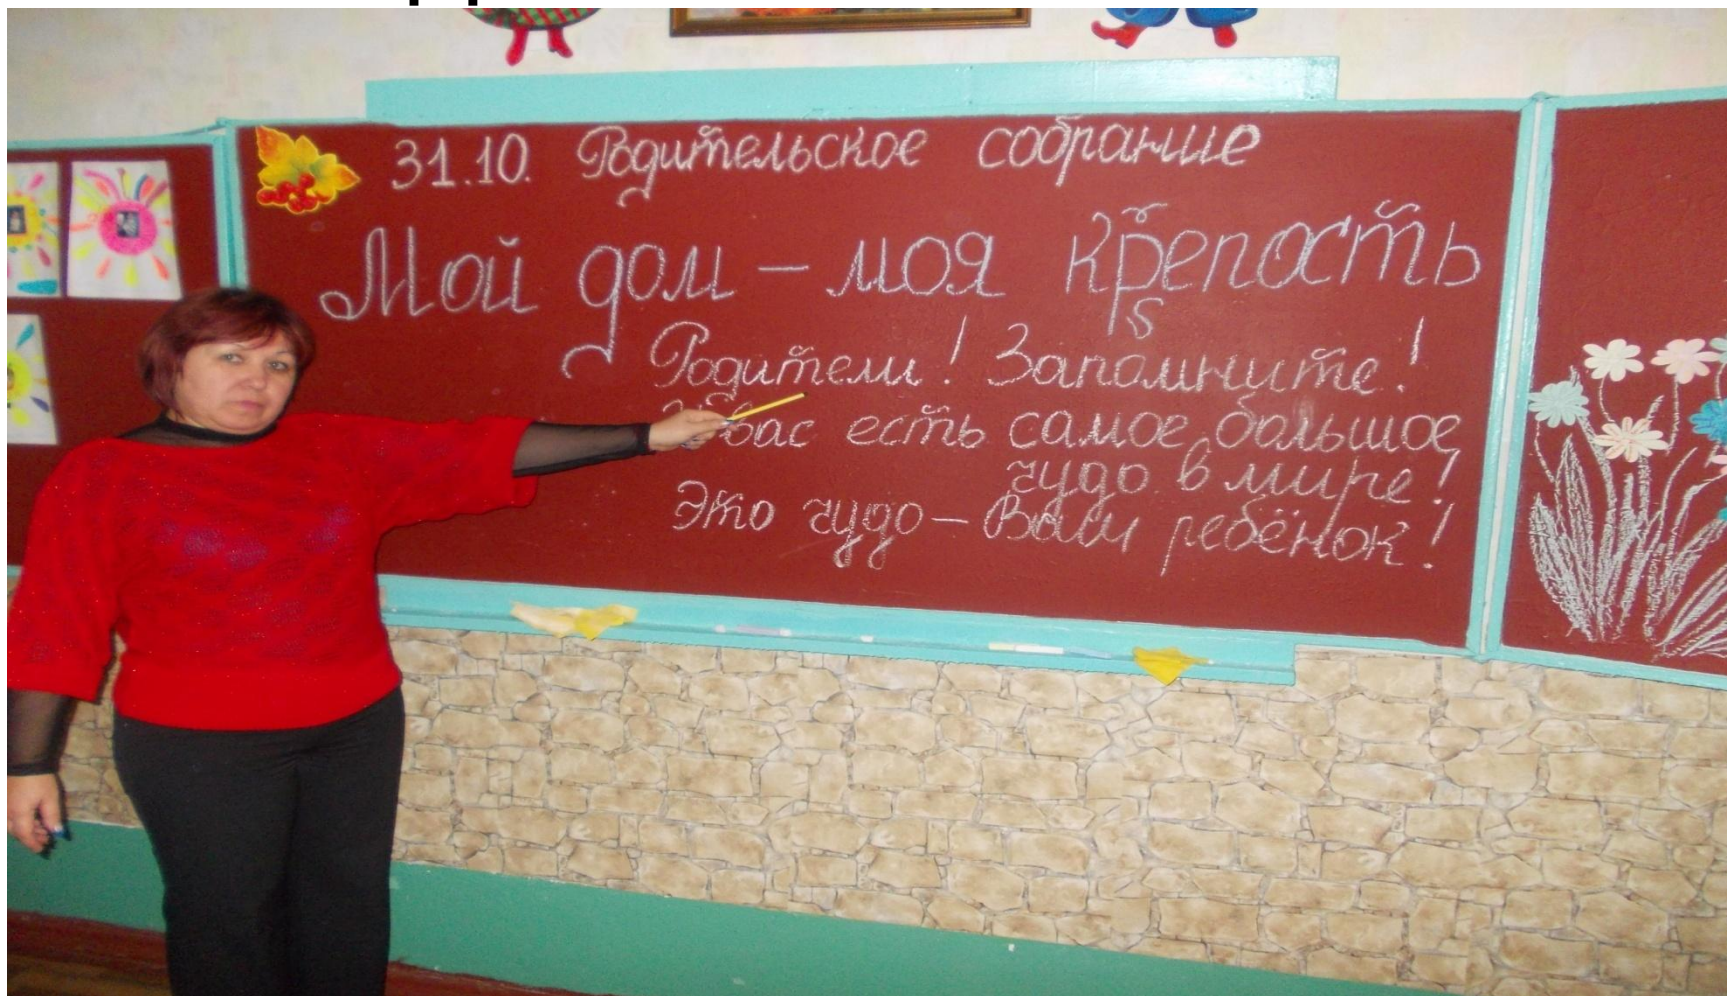 31.10. Родительское собрание
Мой дом – моя крепость
Родители! Запомните!
вас есть самое большое
чудо в мире!
Это чудо – Ваш ребёнок!